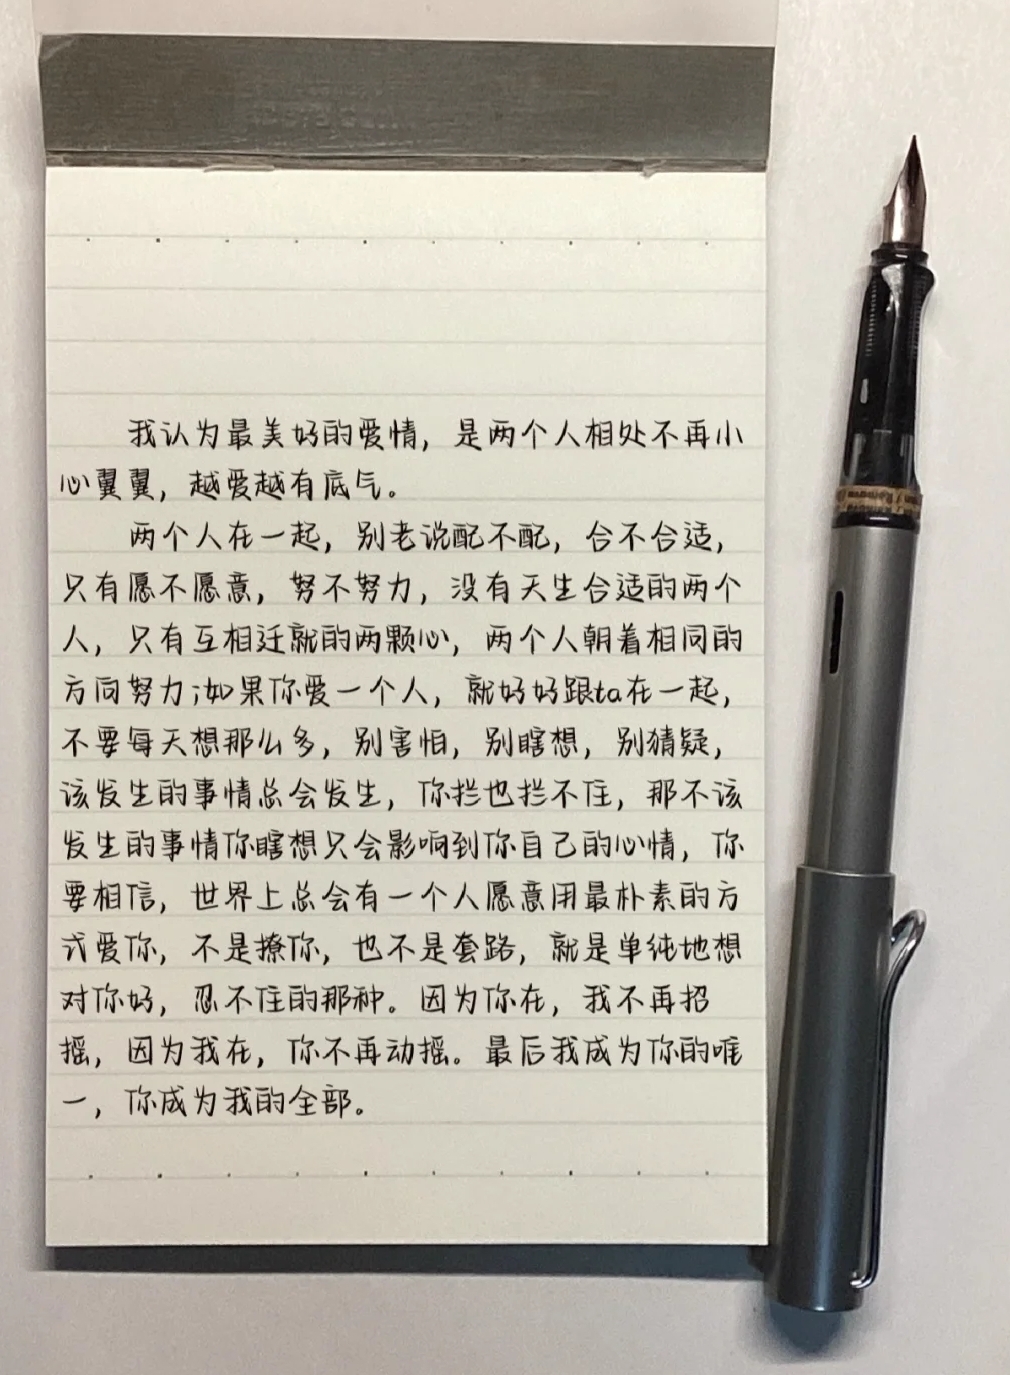 我认为最美好的爱情，是两个人相处不再小
心翼翼，越爱越有底气。
两个人在一起，别老说配不配，合不合适，
只有愿不愿意，努不努力，没有天生合适的两个
人，只有互相迁就的两颗心，两个人朝着相同的
方向努力；如果你爱一个人，就好好跟ta在一起，
不要每天想那么多，别害怕，别瞎想，别猜疑，
该发生的事情总会发生，你拦也拦不住，那不该
发生的事情你瞎想只会影响到你自己的心情，你
要相信，世界上总会有一个人愿意用最朴素的方
式爱你，不是撩你，也不是套路，就是单纯地想
对你好，忍不住的那种。因为你在，我不再招
摇，因为我在，你不再动摇。最后我成为你的唯
一，你成为我的全部。